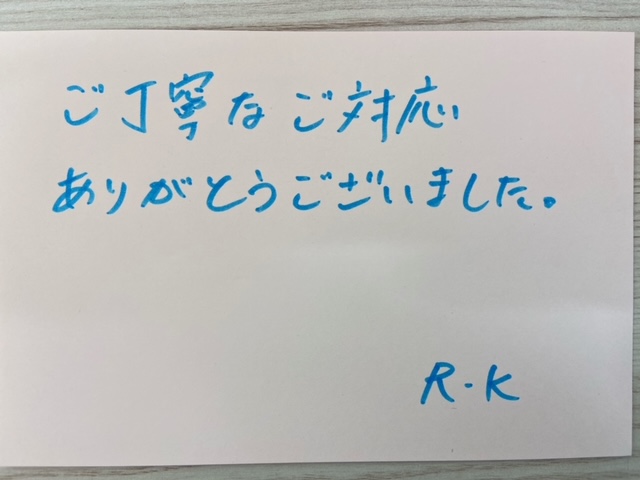 ご丁寧なご対応
ありがとうございました。
R.K